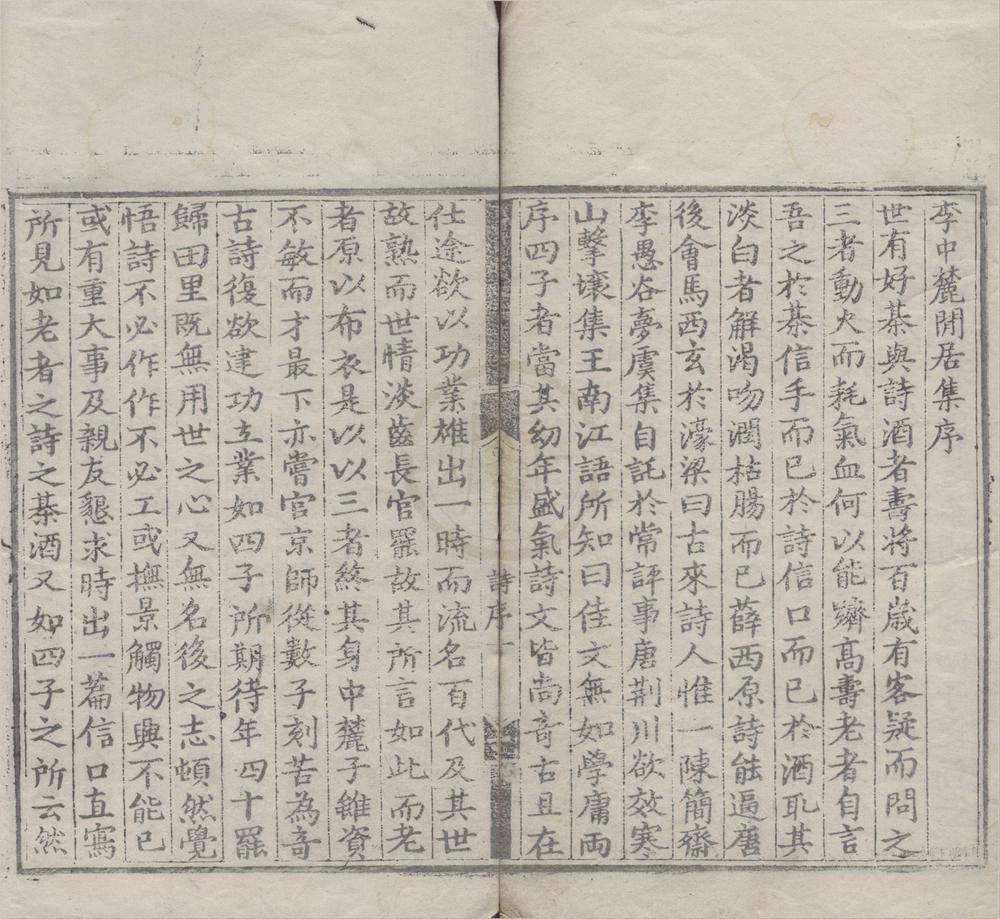 李中麓閒居集序
世有好棊與詩酒者壽將百歲有客疑而問之
三者動火而耗氣血何以能躋高壽老者自言
吾之於棊信手而已於詩信口而已於酒取其
淡白者解渴吻潤枯腸而已薛西原詩能逼唐
後會馬西玄於濠梁曰古來詩人惟一陳簡齋
李愚谷夢虞集自託於常評事唐荆川欲效寒
山擊壤集王南江語所知曰佳文無如學庸兩
序四子者當其幼年盛氣詩文皆尚竒古且在
詩序 一
仕途欲以功業雄出一時而流名百代及其世
故熟而世情淡齒長官罷故其所言如此而老
者原以布衣是以以三者終其身中麓子雖資
不敏而才最下亦嘗官京師從數子刻苦為竒
古詩復欲建功立業如四子所期待年四十罷
歸田里既無用世之心又無名後之志頓然覺
悟詩不必作作不必工或撫景觸物興不能已
或有重大事及親友懇求時出一篇信口直寫
所見如老者之詩之棊酒又如四子之所云然